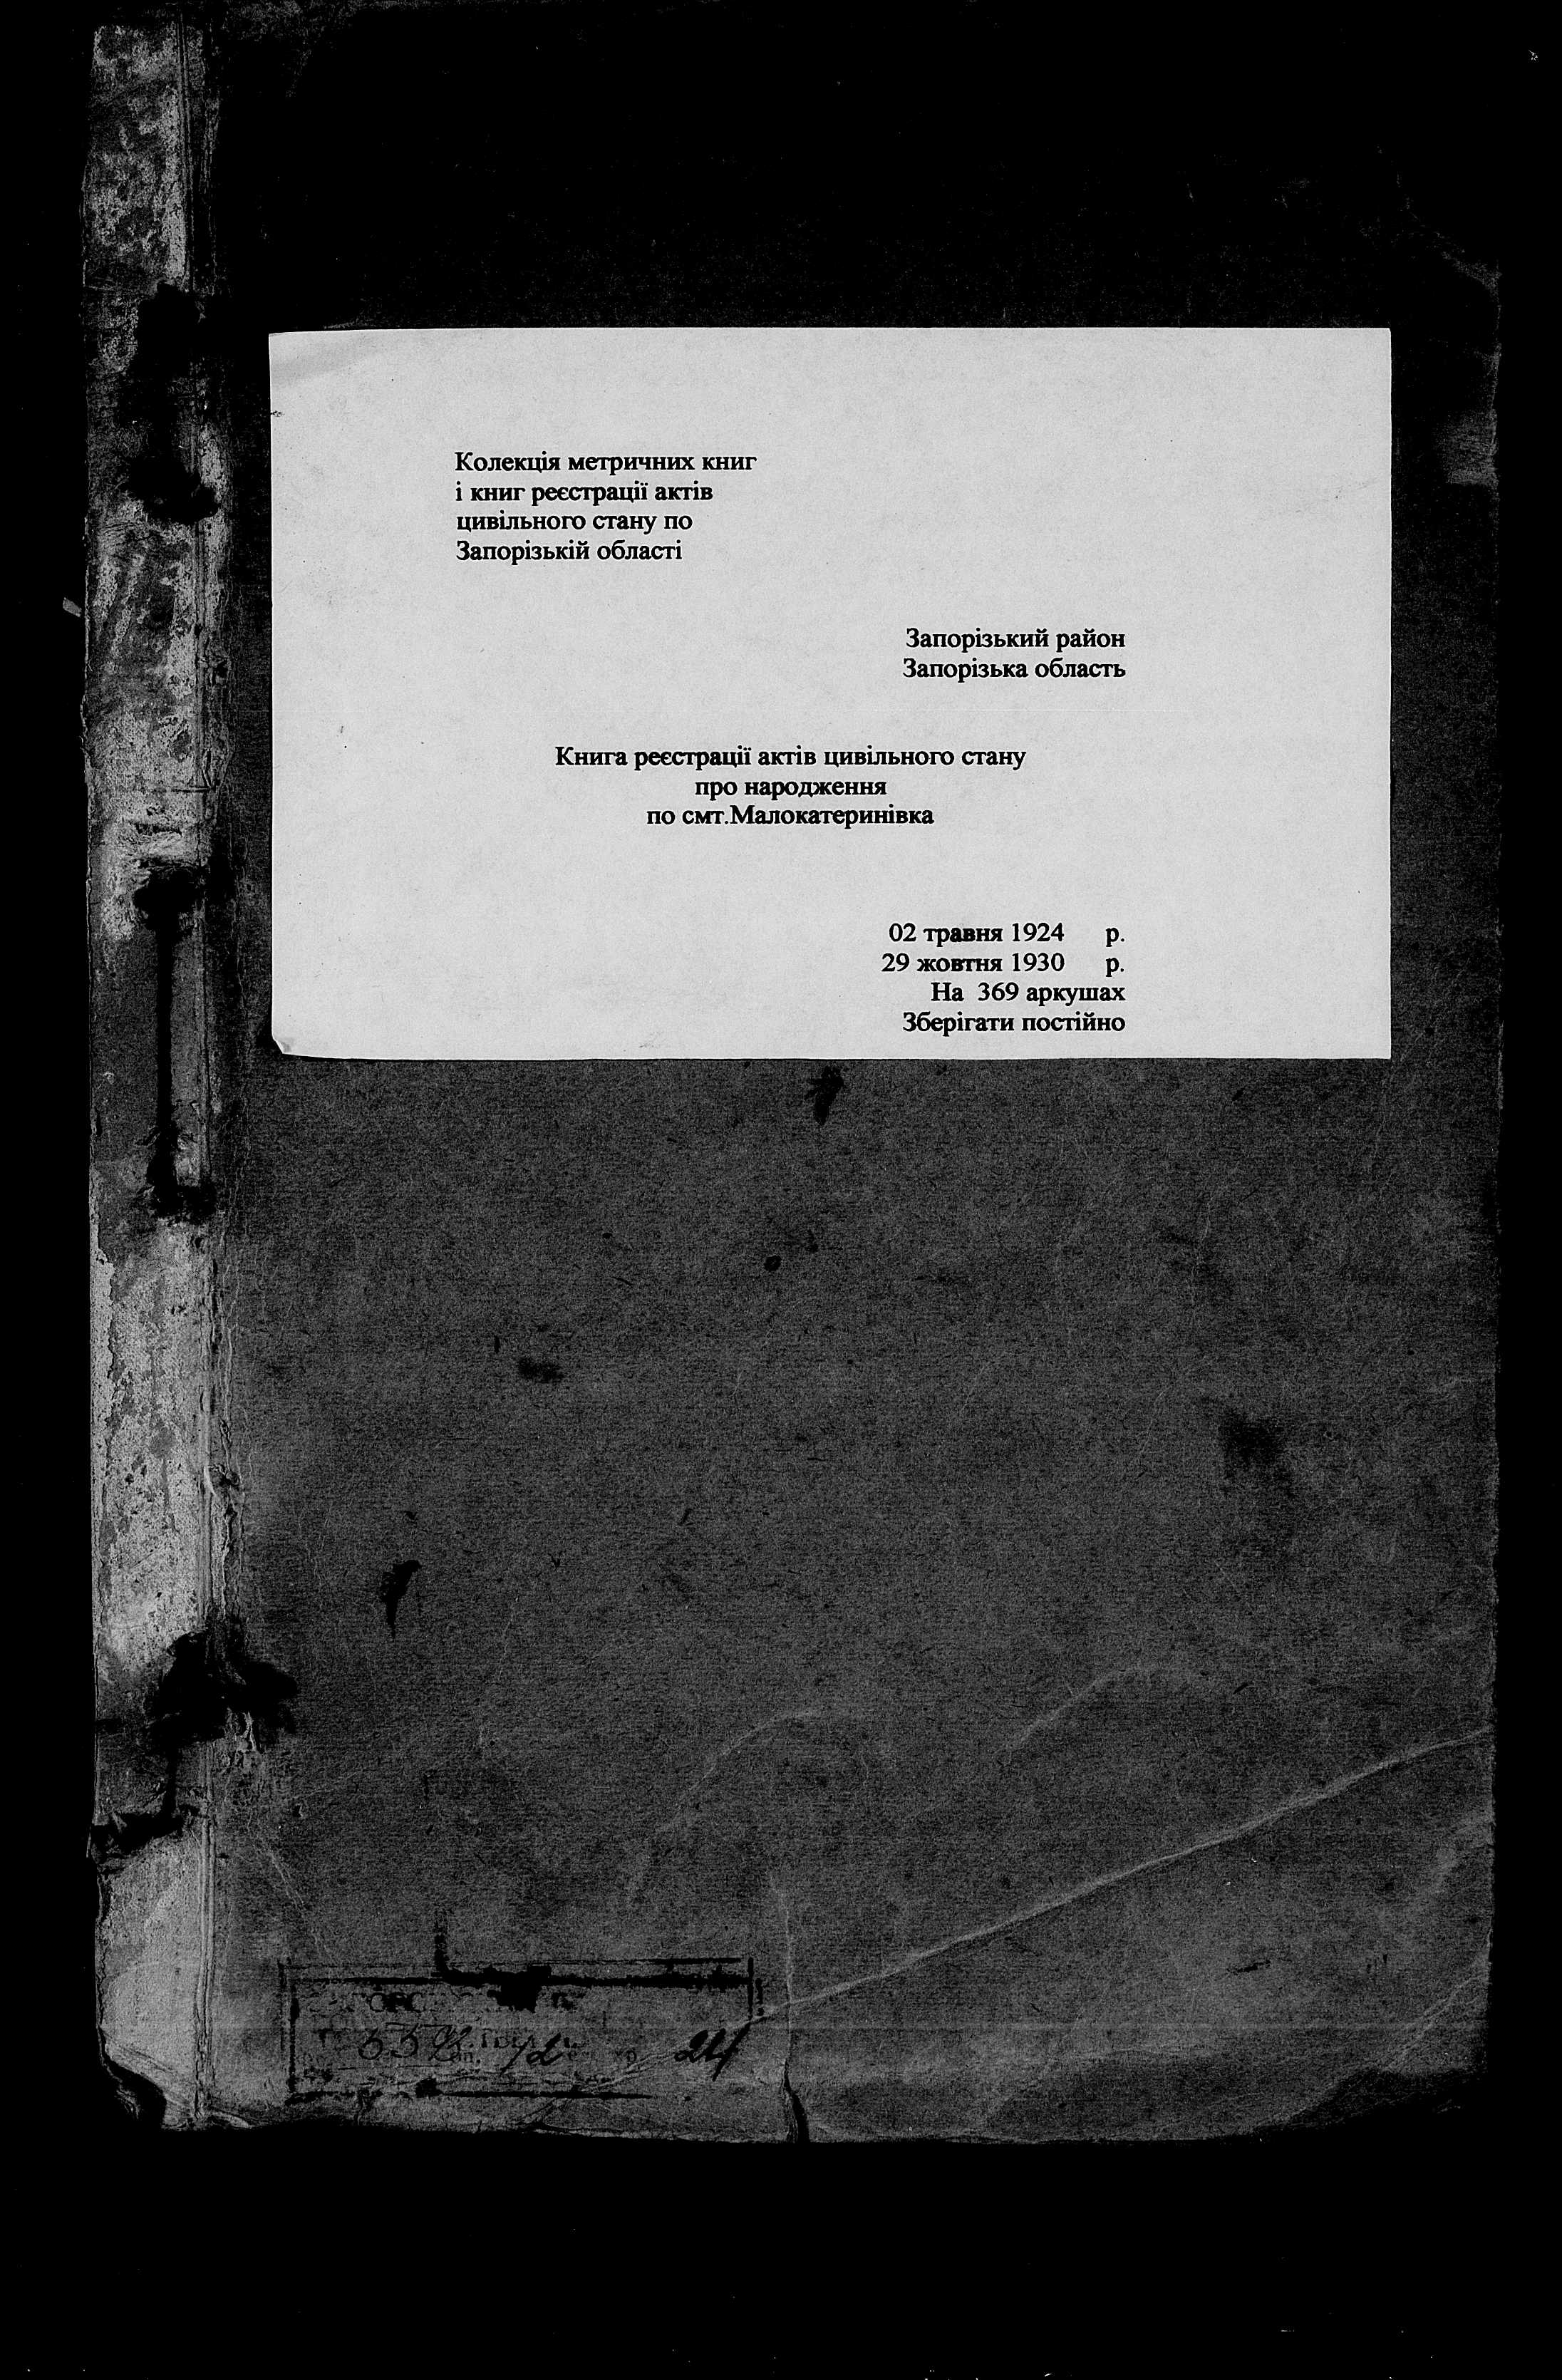 Колекція метричних книг
і книг реєстрації актів
цивільного стану по
Запорізькій області
Запорізький район
Запорізька область
Книга реєстрації актів цивільного стану
про народження
по смт.Малокатеринівка
02 травня 1924 р.
29 жовтня 1930 р.
На 369 аркушах
Зберігати постійно
24